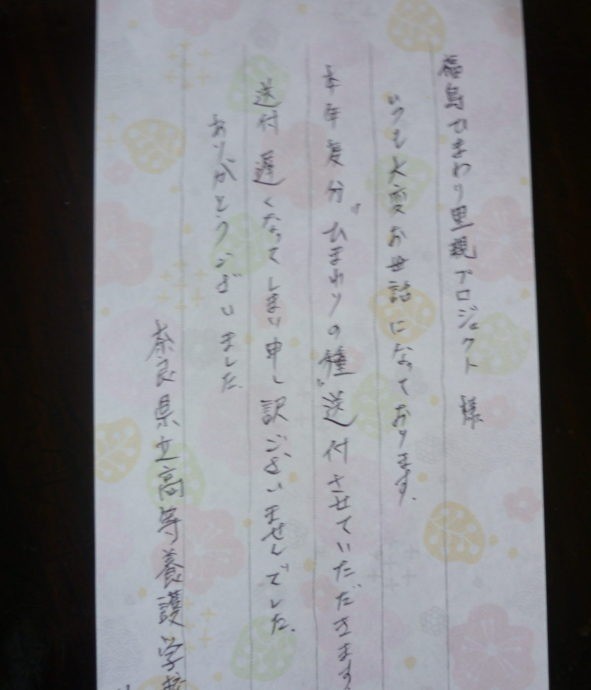 福島ひまわり里親プロジェクト 様
いつも大変お世話になっております。
本年度分〝ひまわりの種〟送付させていただきます
送付遅くなってしまい申し訳ございませんでした。
ありがとうございました。
奈良県立高等養護学校